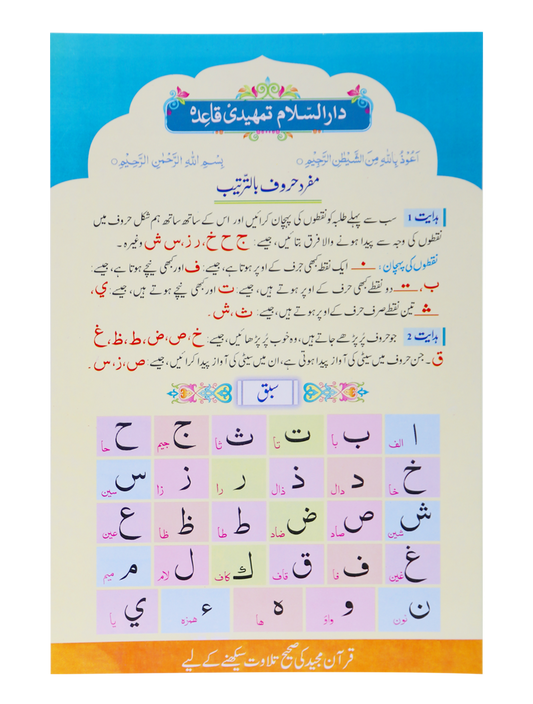 دارالسّلام تمہیدی قاعدہ
اَعُوْذُ بِاللّٰهِ مِنَ الشَّيْطٰنِ الرَّجِيْمِ
بِسْمِ اللّٰهِ الرَّحْمٰنِ الرَّحِيْمِ
مفرد حروف بالترّتیب
ہدایت 1 سب سے پہلے طلبہ کو نقطوں کی پہچان کرائیں اور اس کے ساتھ ساتھ ہم شکل حروف میں
نقطوں کی وجہ سے پیدا ہونے والا فرق بتائیں، جیسے: ج ح خ، ر ز، س ش وغیرہ۔
نقطوں کی پہچان: ایک نقطہ کبھی حرف کے اوپر ہوتا ہے، جیسے: ف اور کبھی نیچے ہوتا ہے، جیسے:
ب، دو نقطے کبھی حرف کے اوپر ہوتے ہیں، جیسے: ت اور کبھی نیچے ہوتے ہیں، جیسے: ي،
تین نقطے صرف حرف کے اوپر ہوتے ہیں، جیسے: ث، ش۔
ہدایت 2 جو حروف پُر پڑھے جاتے ہیں، وہ خوب پُر پڑھائیں، جیسے: خ، ص، ض، ط، ظ، غ
ق۔ جن حروف میں سیٹی کی آواز پیدا ہوتی ہے، ان میں سیٹی کی آواز پیدا کرائیں، جیسے: ص، ز، س۔
سبق
ا الف ب با ت تا ث ثا ج جیم ح حا
خ خا د دال ذ ذال ر را ز زا س سین
ش شین ص صاد ض ضاد ط طا ظ ظا ع عین
غ غین ف فا ق قاف ك کاف ل لام م میم
ن نون و واؤ ه ها ء همزه ي يا
قرآن مجید کی صحیح تلاوت سیکھنے کے لیے